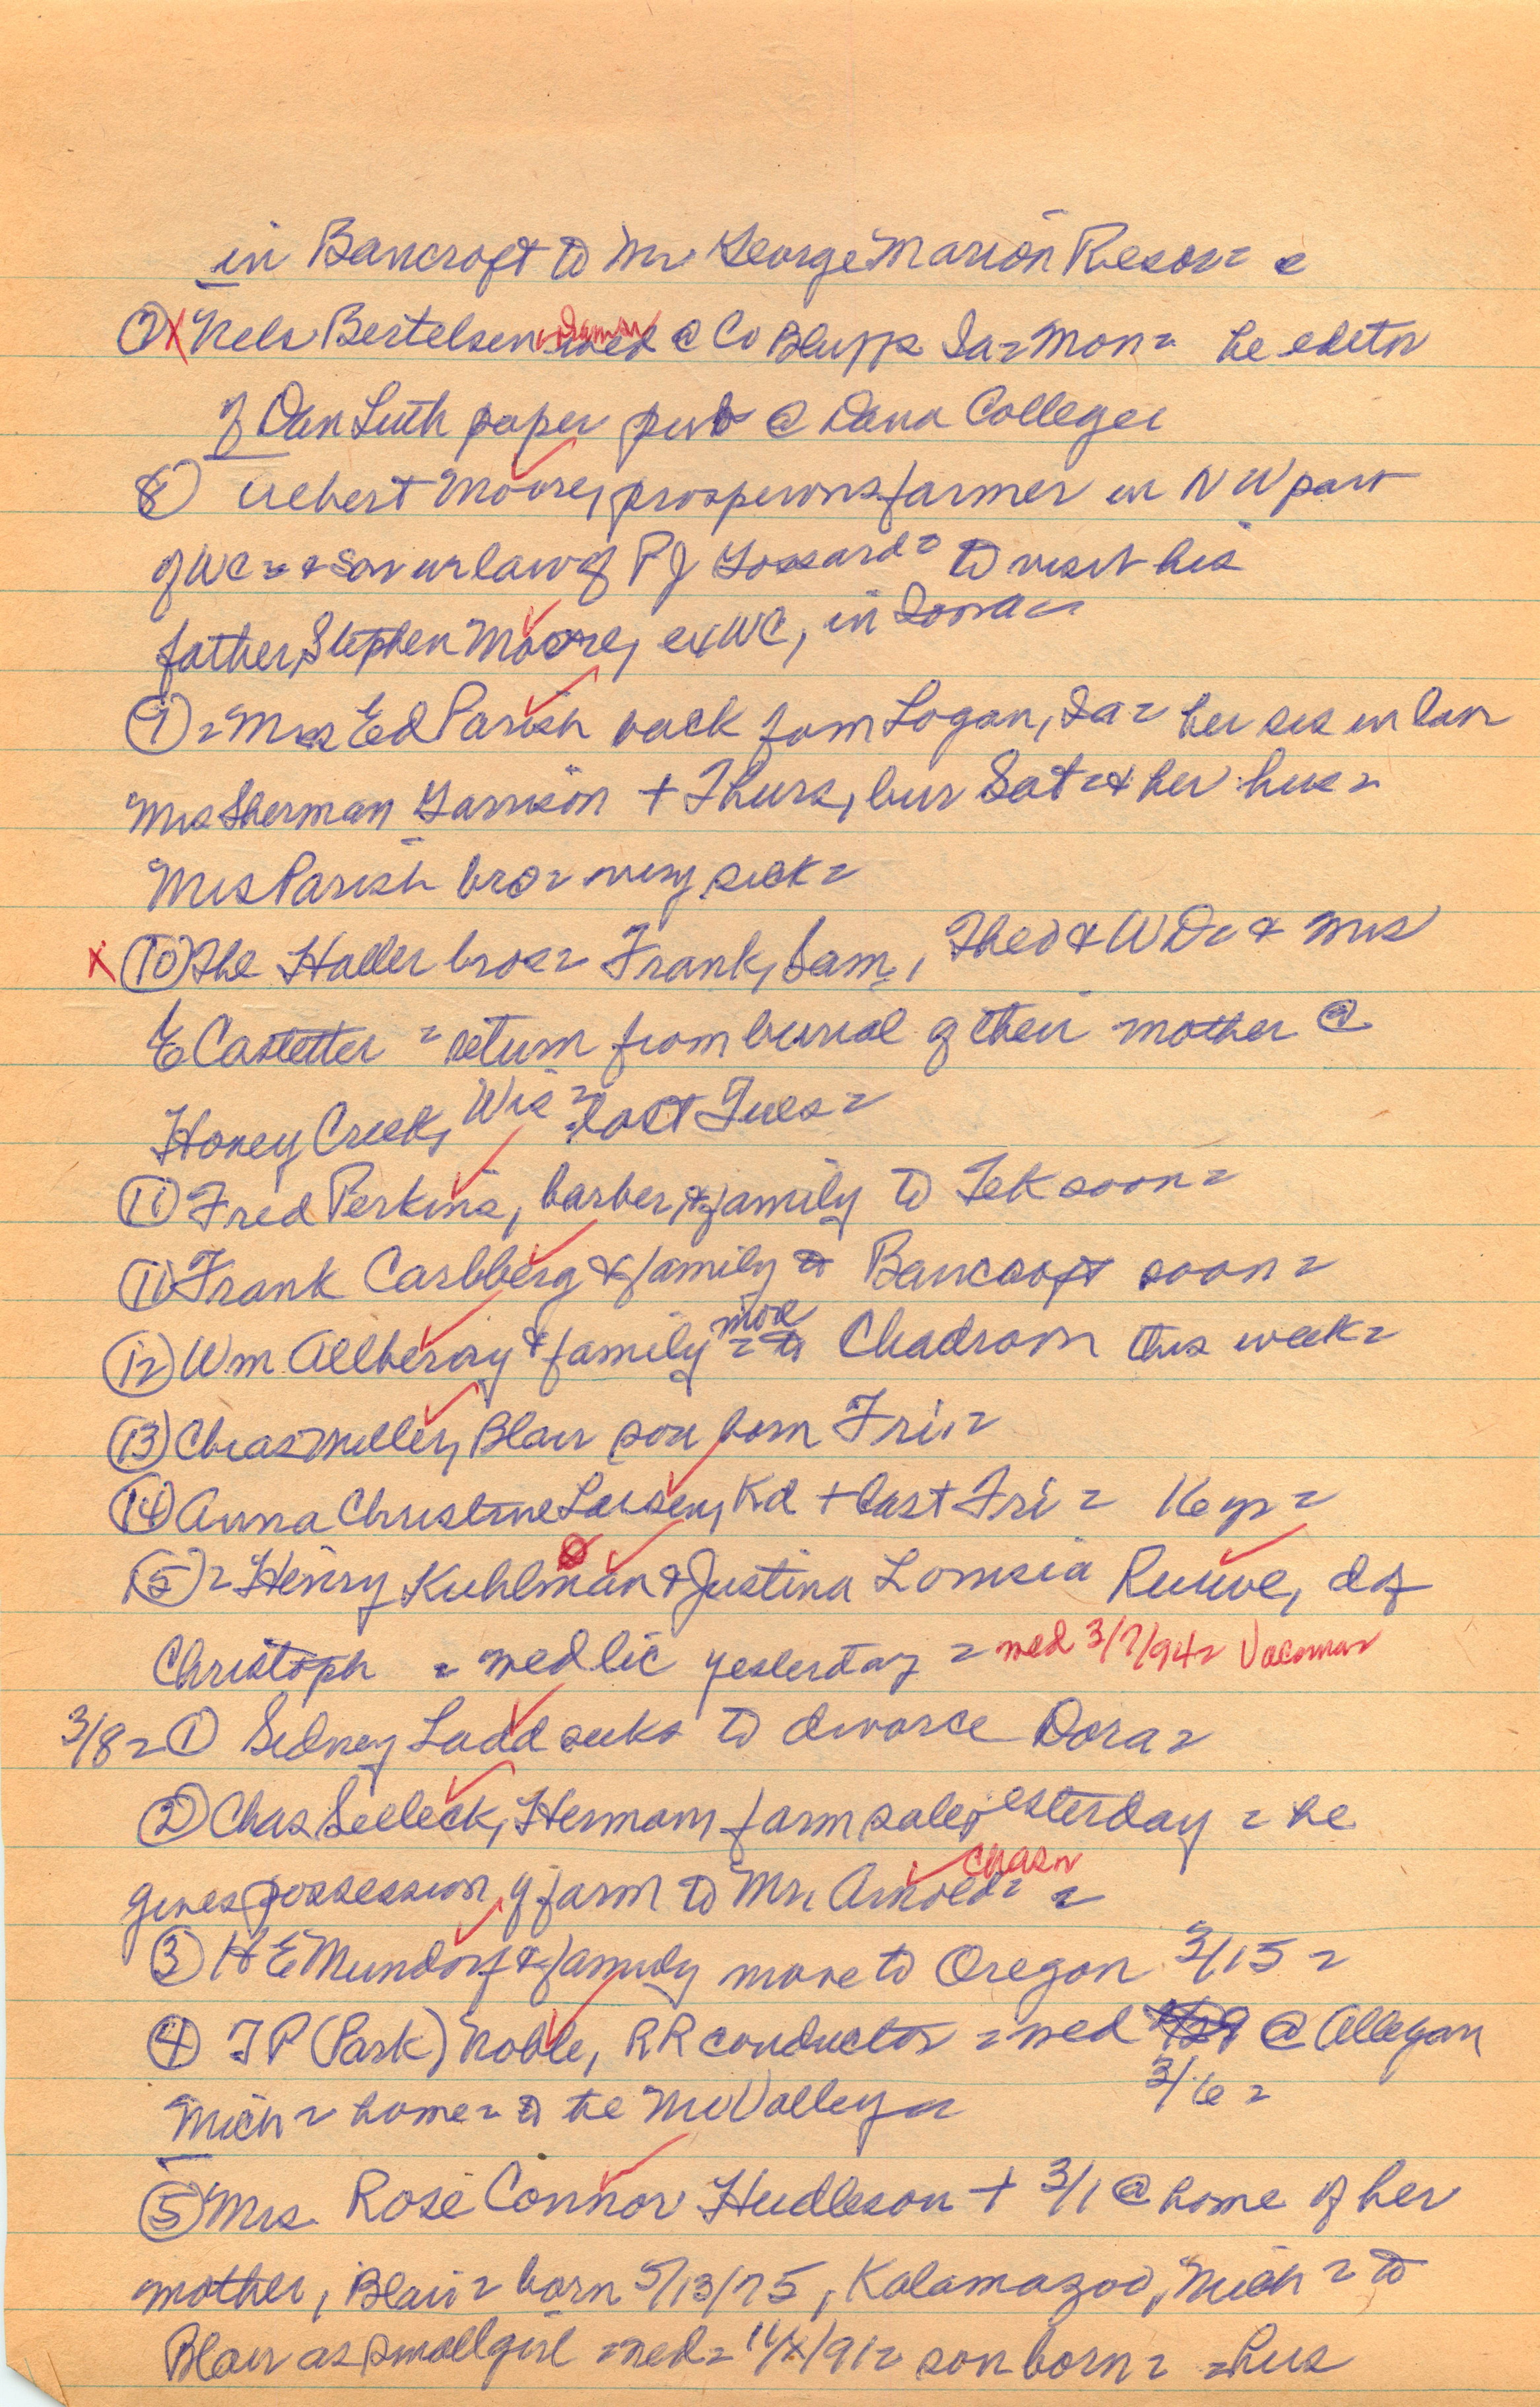 in Bancroft to Mr George Marion Reson = 
⑦ X Nels Bertelsen = wed @ Co Bluffs Ia = Mon = he editor
of Dan Luth paper pub @ Dana College
⑧ Albert Moore, prosperous farmer in NW part
of WC = + son in law of P J Gossard = to visit his
father, Stephen Moore, ex WC, in Iowa =
⑨ = Mrs Ed Parish back fom Logan, Ia = her sis in law
Mrs Sherman Garrison + Thurs, bur Sat = & her hus =
Mrs Parish bro = very sick =
X ⑩ The Haller bros = Frank, Sam, Theo & WD = & Mrs
E Castetter = return from burial of their mother @
Honey Creek, Wis = last Tues =
⑪ Fred Perkins, barber, & family to Tek soon =
⑪ Frank Carlberg & family to Bancroft soon =
⑫ Wm Allbery & family = move to Chadron this week =
⑬ Chas Miller, Blair son born Fri. =
⑭ Anna Christine Larsen, Kd + last Fri =
⑮ = Henry Kuhlman & Justina Louisia Ruwe, d of
Christoph = wed lic yesterday = wed 3/7/94 = Vacoma =
3/8 = ① Sidney Ladd seeks to divorce Dora =
② Chas Selleck, Herman farm sale yesterday = he
gives possession of farm to Mr. Arnold = Chas =
③ H E Mundorf & family move to Oregon 3/15 =
④ T P (Park) Noble, RR conductor = wed @ Allegan
3/6 =
Mich = home = to the Mo Valley =
⑤ Mrs. Rose Connor Hudleson + 3/1 @ home of her
mother, Blair = born 5/13/75, Kalamazoo, Mich = to
Blair as small girl = wed = 11/x/91 = son born = = hus